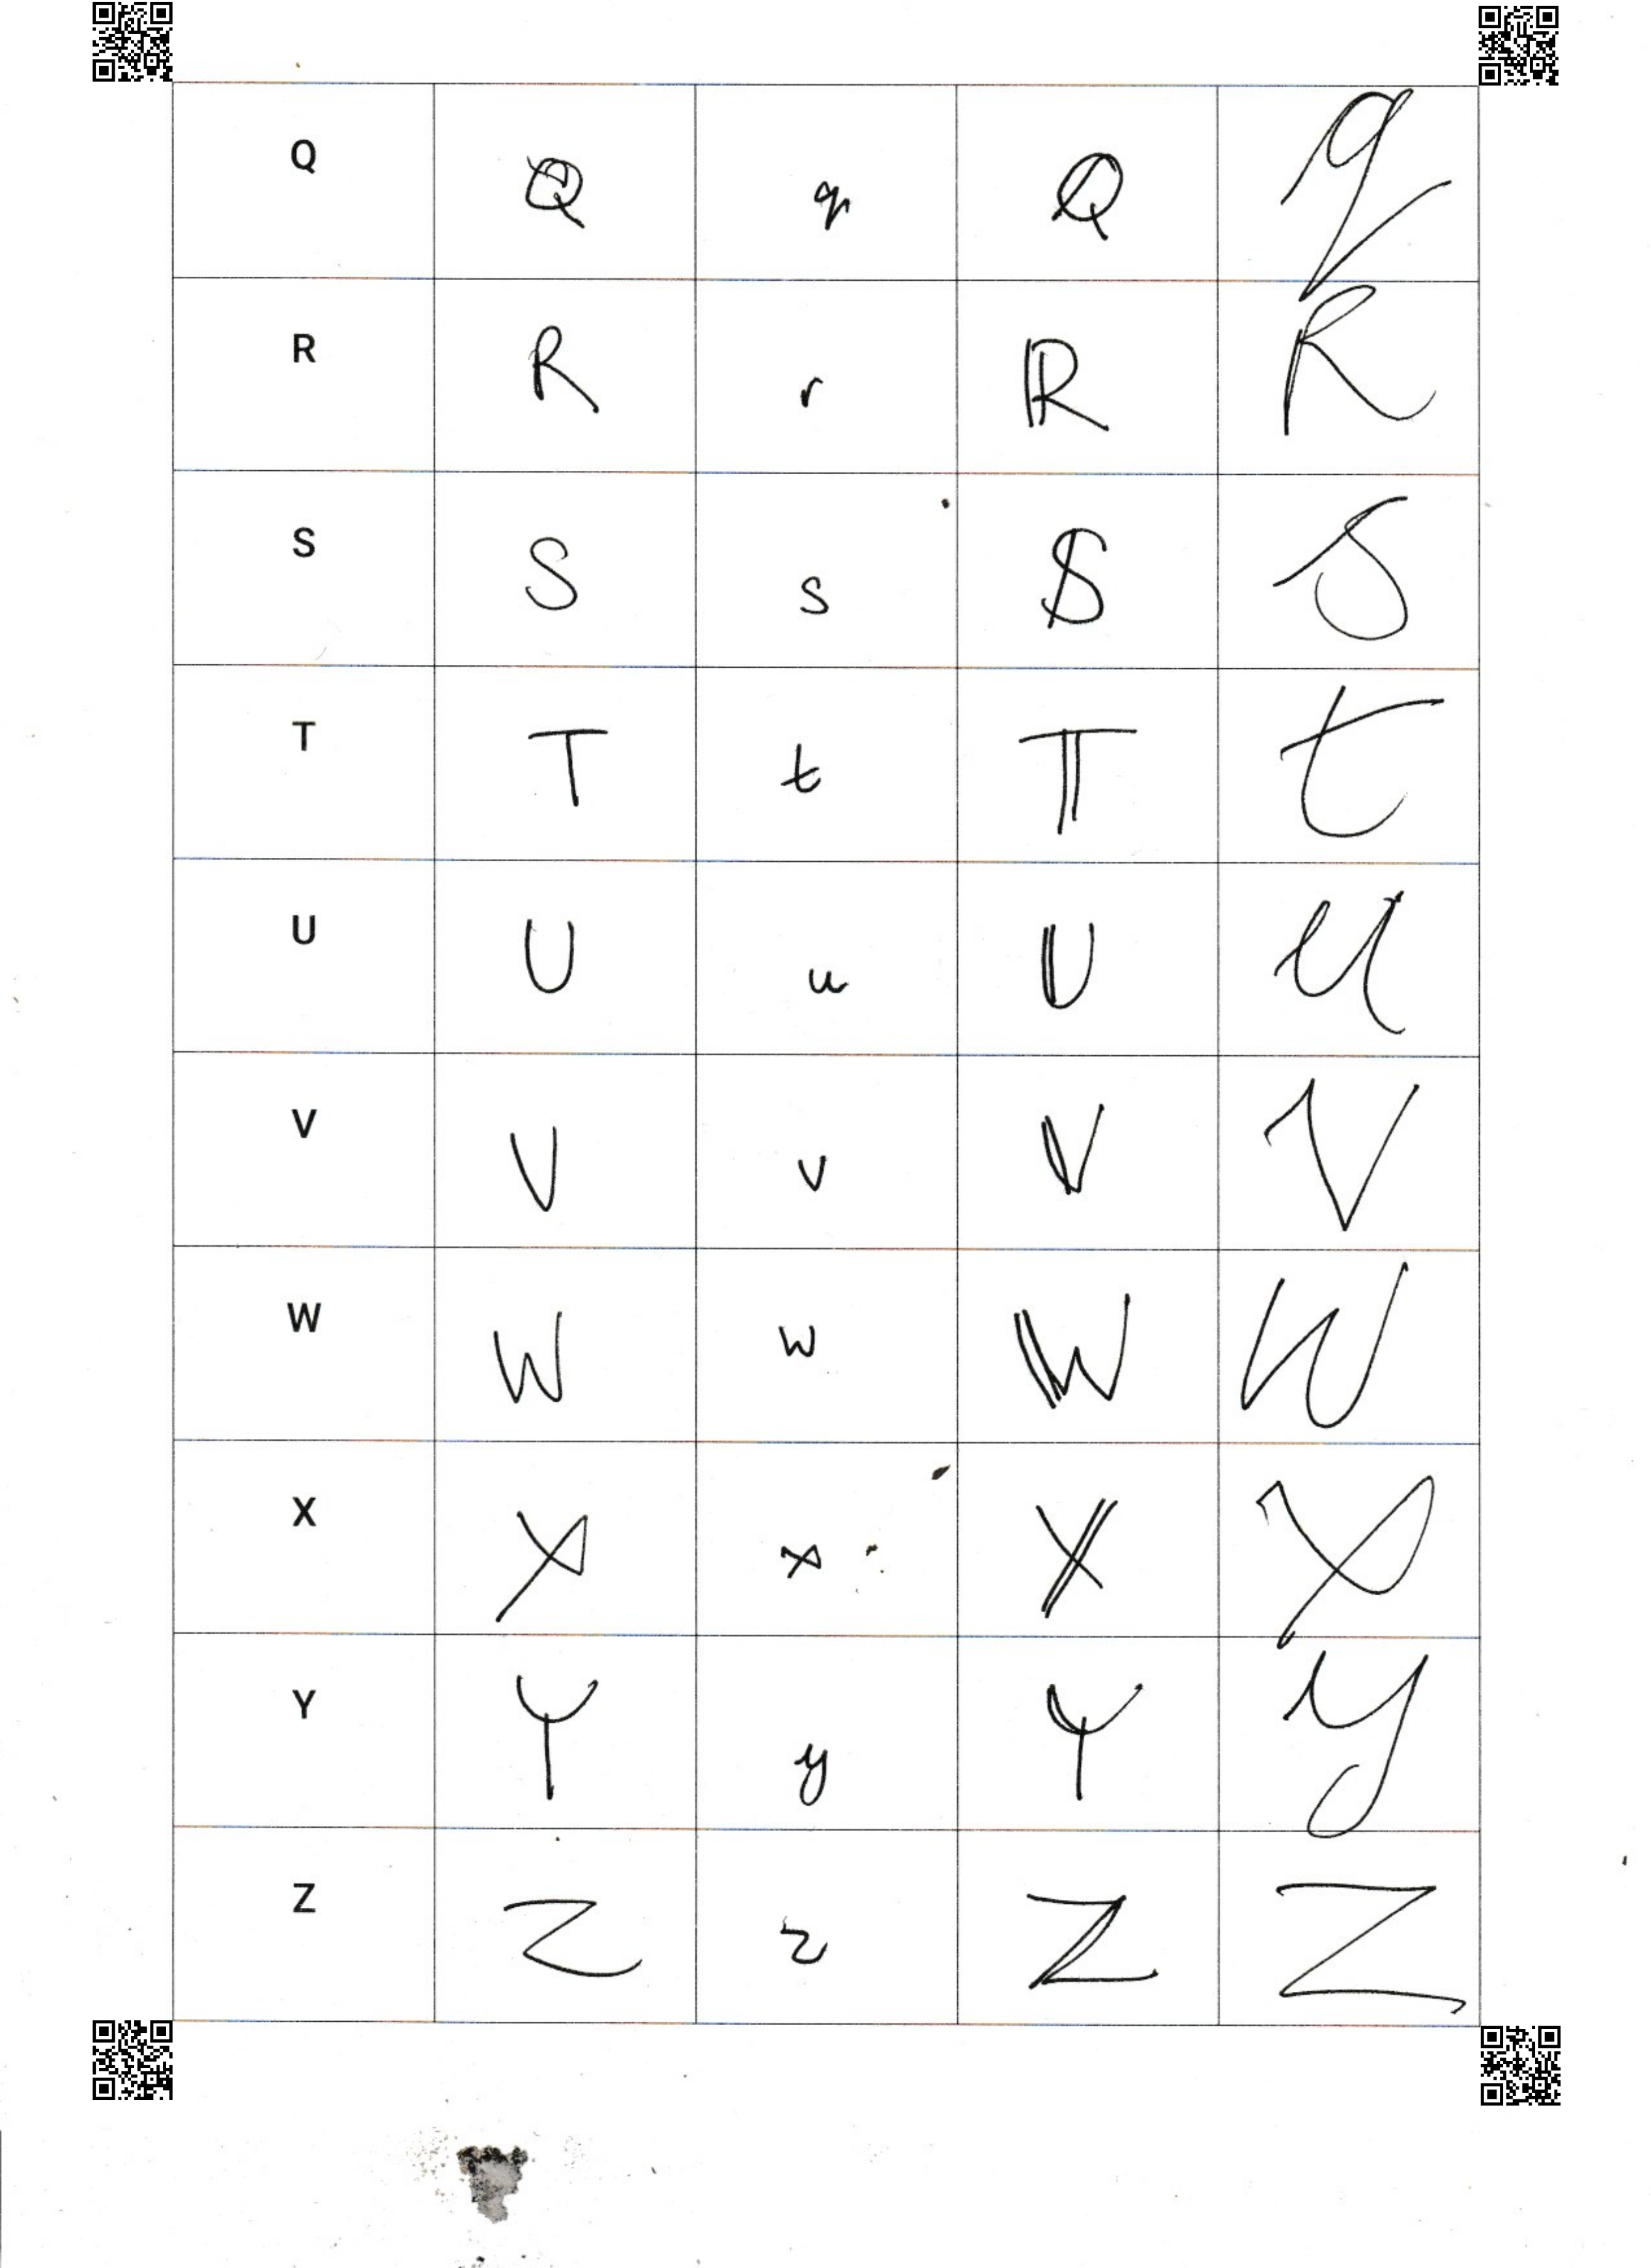 Q Q q Q q
R R r R R
S S s S S
T T t T t
U U u U U
V V v V V
W W w W W
X X x X X
Y Y y Y y
Z Z z Z Z